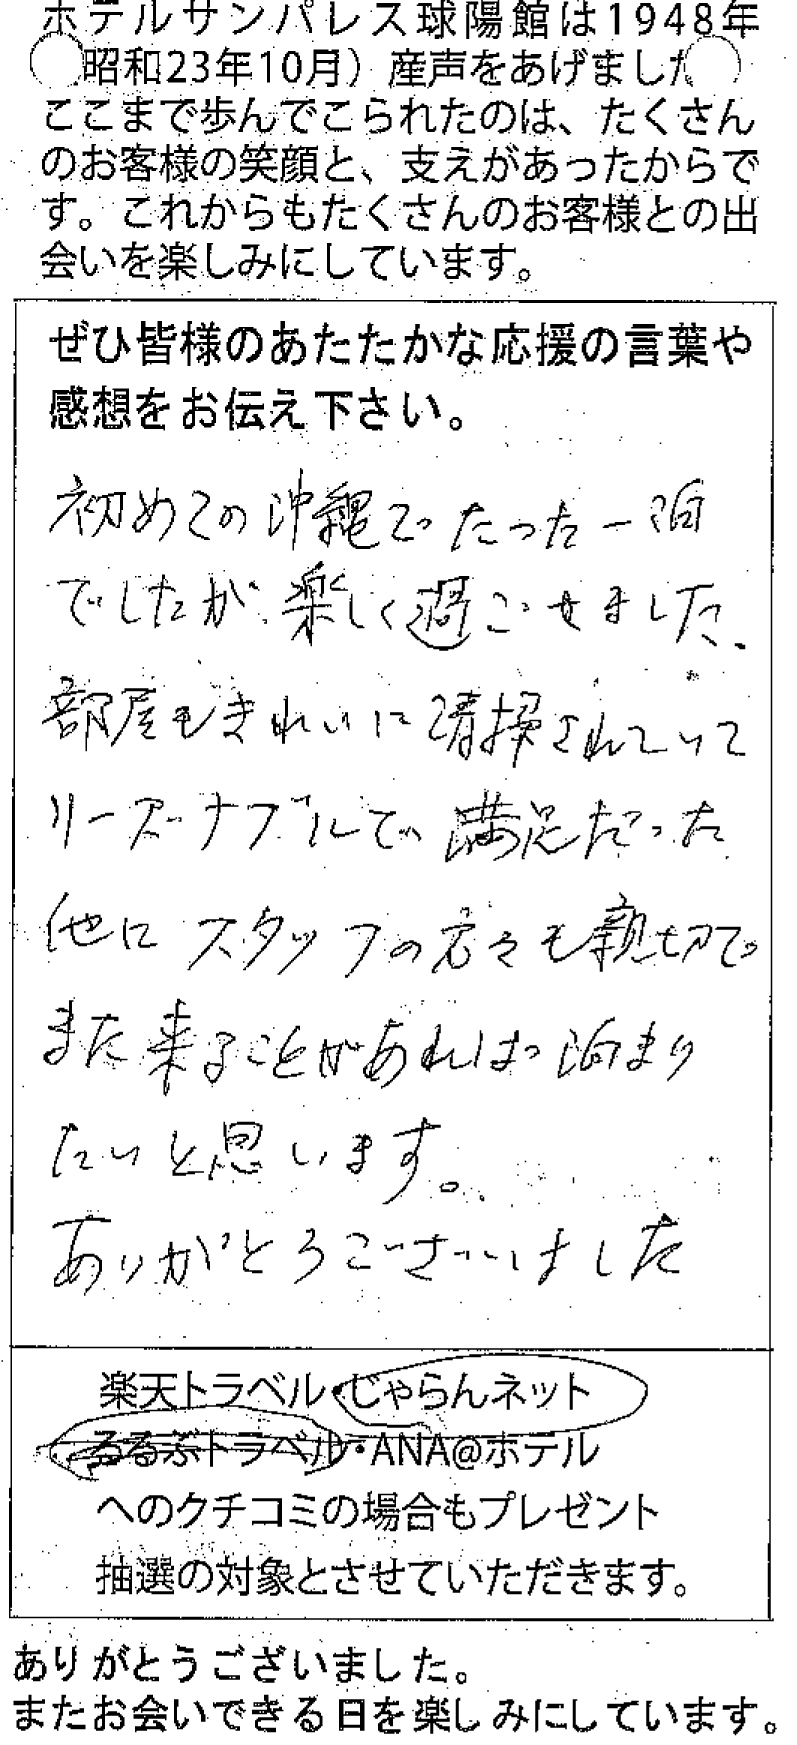 ホテルサンパレス球陽館は1948年
昭和23年10月）産声をあげました
ここまで歩んでこられたのは、たくさん
のお客様の笑顔と、支えがあったからで
す。これからもたくさんのお客様との出
会いを楽しみにしています。
ぜひ皆様のあたたかな応援の言葉や
感想をお伝え下さい。
初めての沖縄でたった一泊
でしたが、楽しく過ごせました、
部屋もきれいに清掃されていて
リーズナブルで満足だった
他にスタッフの方々も親切で
また来ることがあれば泊まり
たいと思います。
ありがとうございました
楽天トラベル・じゃらんネット
るるぶトラベル・ANA@ホテル
へのクチコミの場合もプレゼント
抽選の対象とさせていただきます。
ありがとうございました。
またお会いできる日を楽しみにしています。